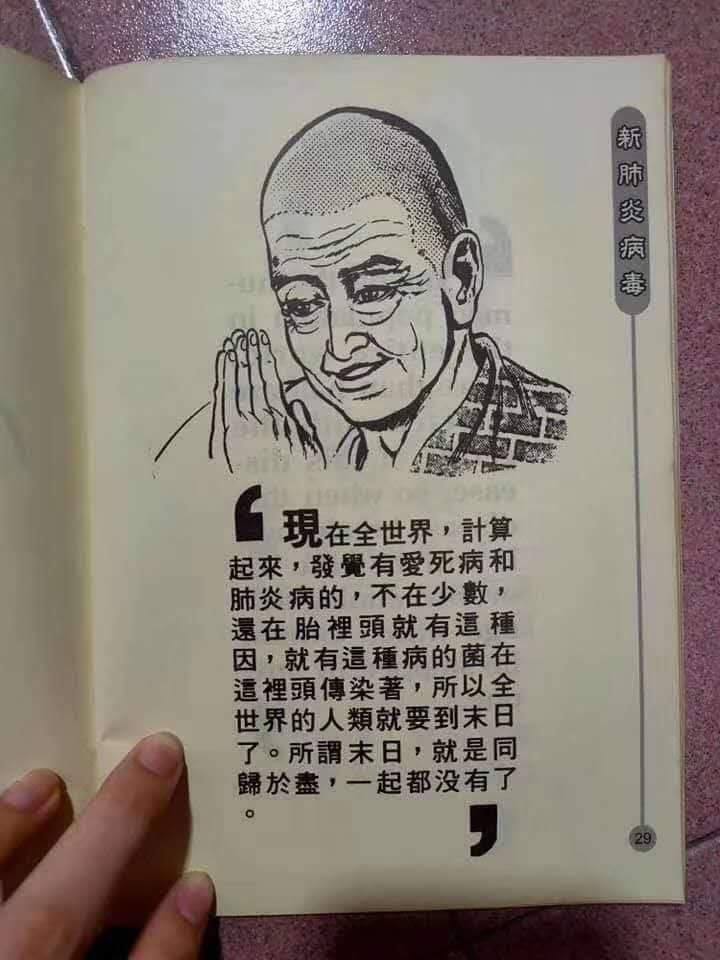 新肺炎病毒
‘現在全世界，計算
起來，發覺有愛死病和
肺炎病的，不在少數，
還在胎裡頭就有這種
因，就有這種病的菌在
這裡頭傳染著，所以全
世界的人類就要到末日
了。所謂末日，就是同
歸於盡，一起都没有了
。’
29